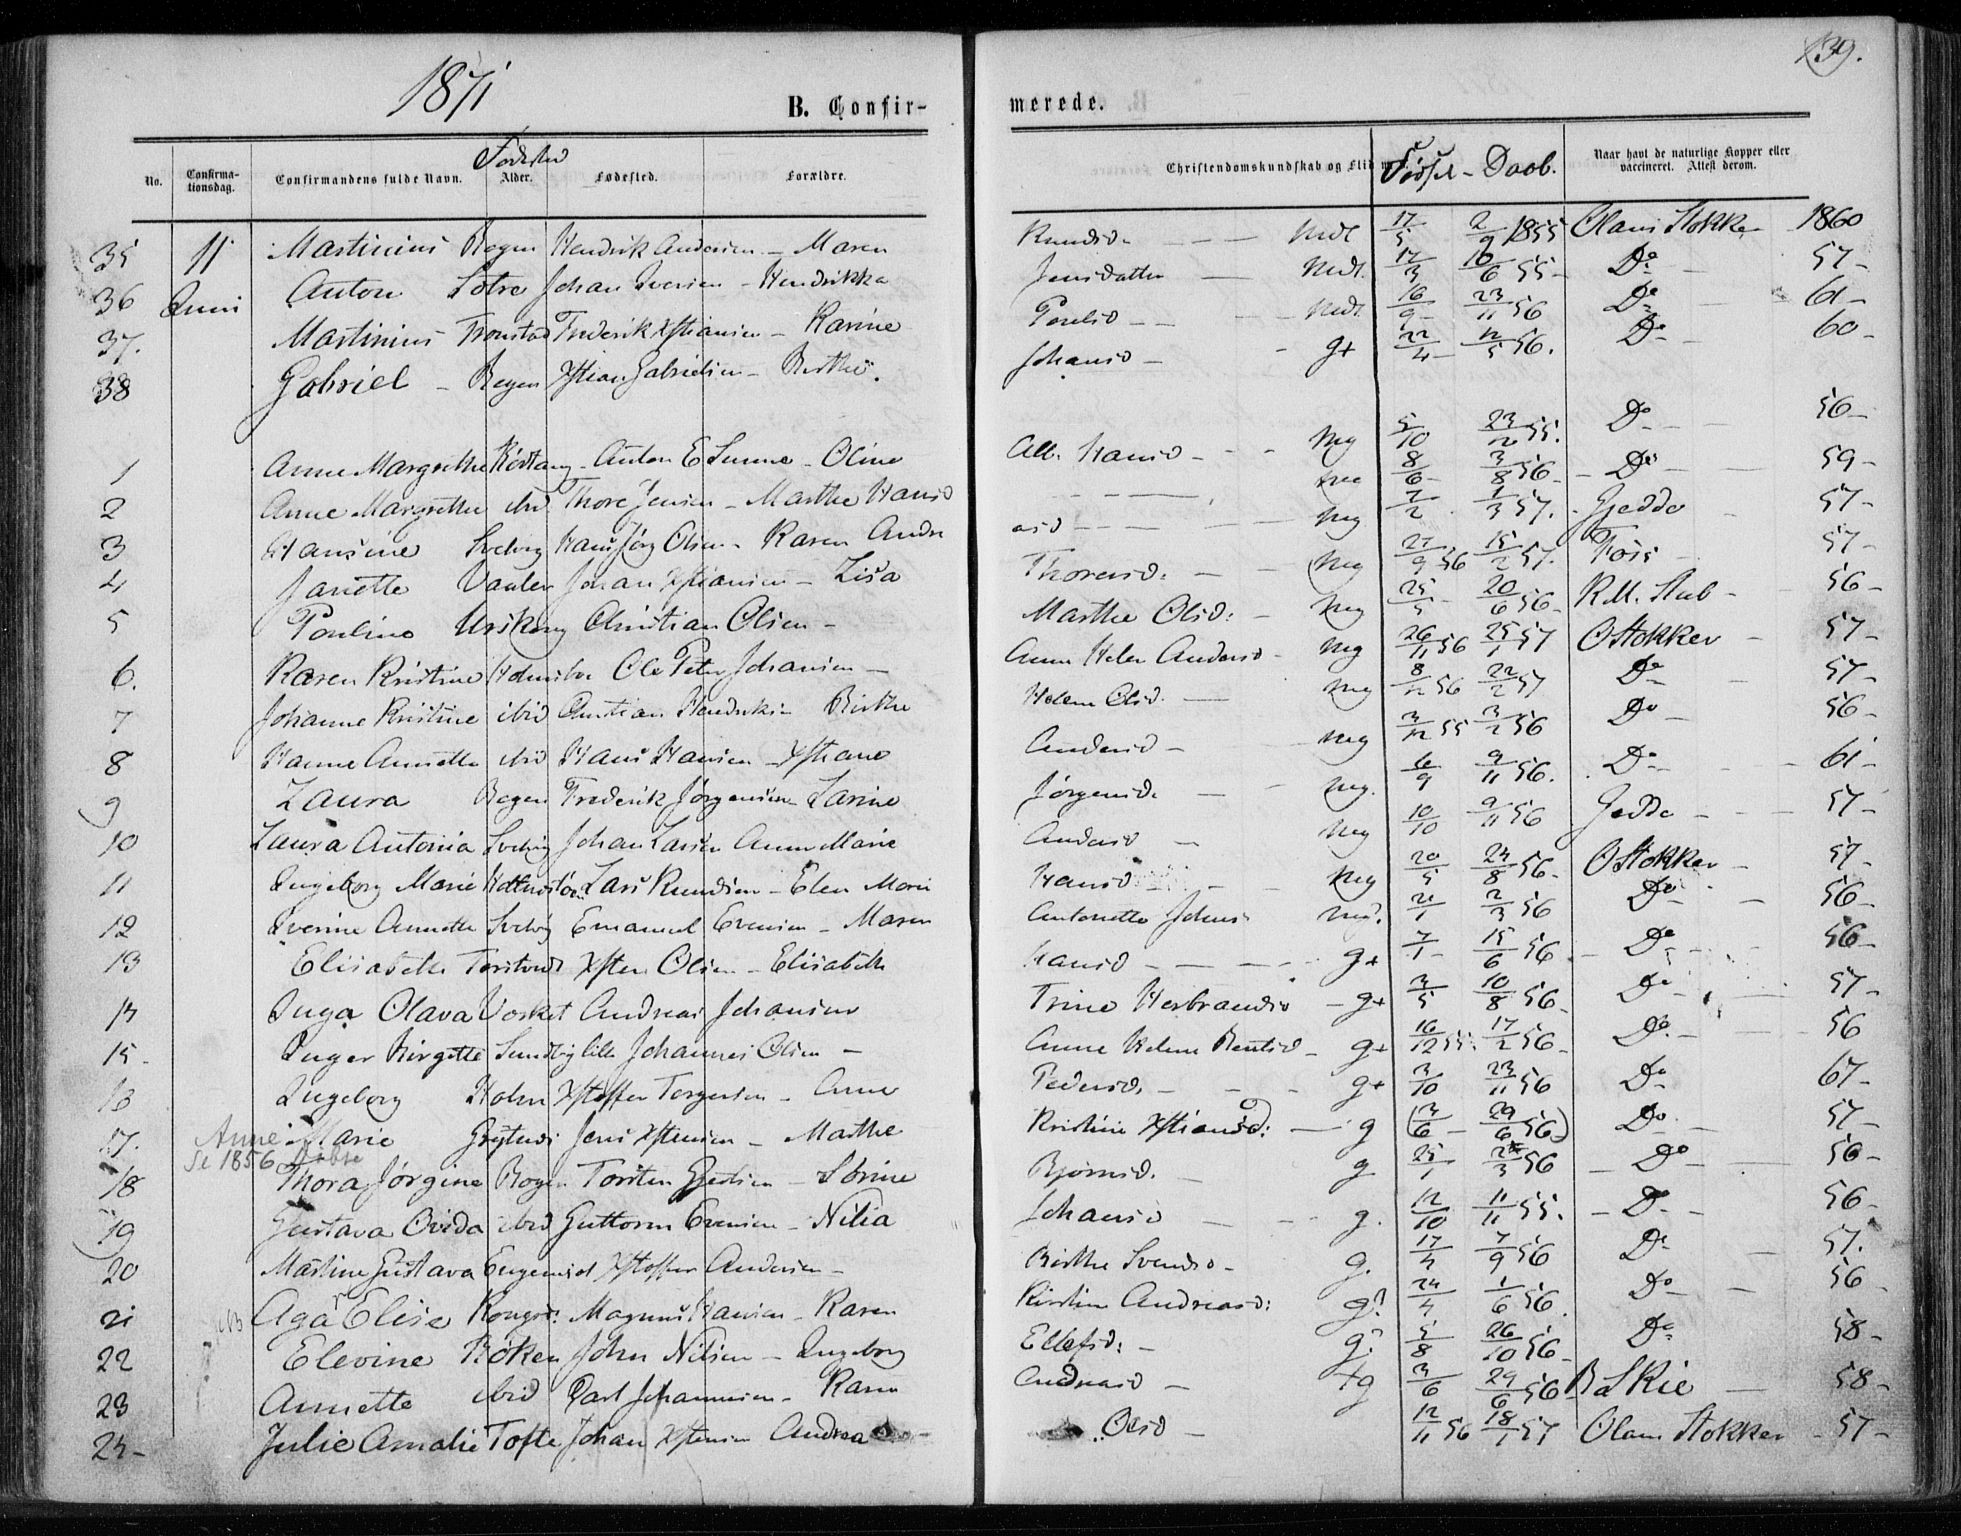 1871
139.
B. Confir-
merede.
Fødested
No.
Confirma-
tionsdag.
Confirmandens fulde Navn.
Alder.
Fødested.
Forældre.
Christendomskundskab og Flid
Fødsel - Daab.
Naar havt de naturlige Kopper eller
vaccineret. Attest derom.
35 11 Martinius Bogen Hendrik Andersen - Maren Knudsd. Mdt 17/5 2/9 1855 Olaus Stokker 1860
36 Juni Anton Sotre Johan Iversen - Hendrikka Jensdatter Mdt. 17/3 10/6 55 Do 57
37. Martinius Tronstad Frederik Xstiansen - Karine Poulsd Mdt. 16/9 23/11 56 Do 61
38 Gabriel - Bogen Xstian Gabrielsen - Berthe. Johansd g+ 22/4 12/5 56. Do 60
1 Anne Margrethe Rødtang - Anton E - Oline Alb. Hansd mg 5/10 23/12 55. Do 56
2 Anne Margrethe ibid Thore Jensen - Marthe Hansd 8/6 3/8 56 Do 59
3 Hansine Svelvig Hans Jørg Olsen - Karen Andre asd mg 7/2 1/3 57. Gjedde 57
4 Janette Johan Xstiansen - Lisa Thorensd. mg 27/9 56 15/2 57. 57
5 Pauline Christian Olsen - Marthe Olsd: mg 25/5 20/6 56 R.M. Stub 56
6. Karen Kristine Holmsbo Ole Peter Johansen - Anne Helen Andersd mg 26/11 56 25/1 57 O Stokker 57
7 Johanne Kristine ibid Christian Hendriksen Birthe Helene Olsd. mg 8/12 56 22/2 57 Do 57
8 Hanne Annette ibid Hans Hansen - Xstiane Andersd mg 3/12 55 3/2 56 Do 56
9 Laura Bogen Frederik Jørgensen - Larine Jørgensd. mg. 6/9 9/11 56. Do 61
10 Laura Antonia Svelvig Johan Larsen Anne Marie Andersd mg 10/10 9/11 56 Gjedde 57
11 Ingeborg Marie Lars Knudsen - Elen Marie Hansd mg 20/5 24/8 56 O Stokker 57
12 Iverine Annette Svelvig Emanuel Evensen - Maren Antonette Johns mg. 21/1 2/3 56 Do 56
13 Elisabeth Xsten Olsen - Elisabeth Hansd g+ 15/6 56 Do 56
14 Inga Olava Andreas Johansen Trine Herbrandsd g+ 3/5 10/8 56 Do 57
15 Inger Birgitte Sundby lille Johannes Olsen - Anne Helene Bentsd g+ 16/12 55 17/2 56 Do 56
16 Ingeborg Holm Xstoffer Torgersen - Anne Pedersd. g+ 3/10 23/11 56 Do 67
17. Anne Marie Jens Xstensen - Marthe Kristine Xstiansd: g (3/6 29/6 56) Do 57
Se 1856 Døbte
18 Thora Jørgine Bogen Torsten - Sørine Bjørnsd. g 25/1 24/3 56 Do 56
19 Gustava Ovida ibid Guttorm Evensen - Nilia Johansd g. 12/10 11/11 55. Do 56
20 Martine Gustava Engene Xstoffer Andersen - Birthe Svendsd g. 17/4 7/9 56 Do 57.
21 Aga Elise Kongsd: Magnus Hansen - Karen Kirstine Andreasd: g? 24/4 1/6 56 Do 56
22 Elevine Røken John Nilsen - Ingeborg Ellefsd: g? 5/8 26/10 56 Do 58
23 Annette ibid Carl Johannesen - Karen Andreasd tg 3/6 29/6 56 B Skie 58
24 Julie Amalie Tofte Johan Xstensen Andrea Olsd 12/11 56 18/1 57 Olaus Stokker 57